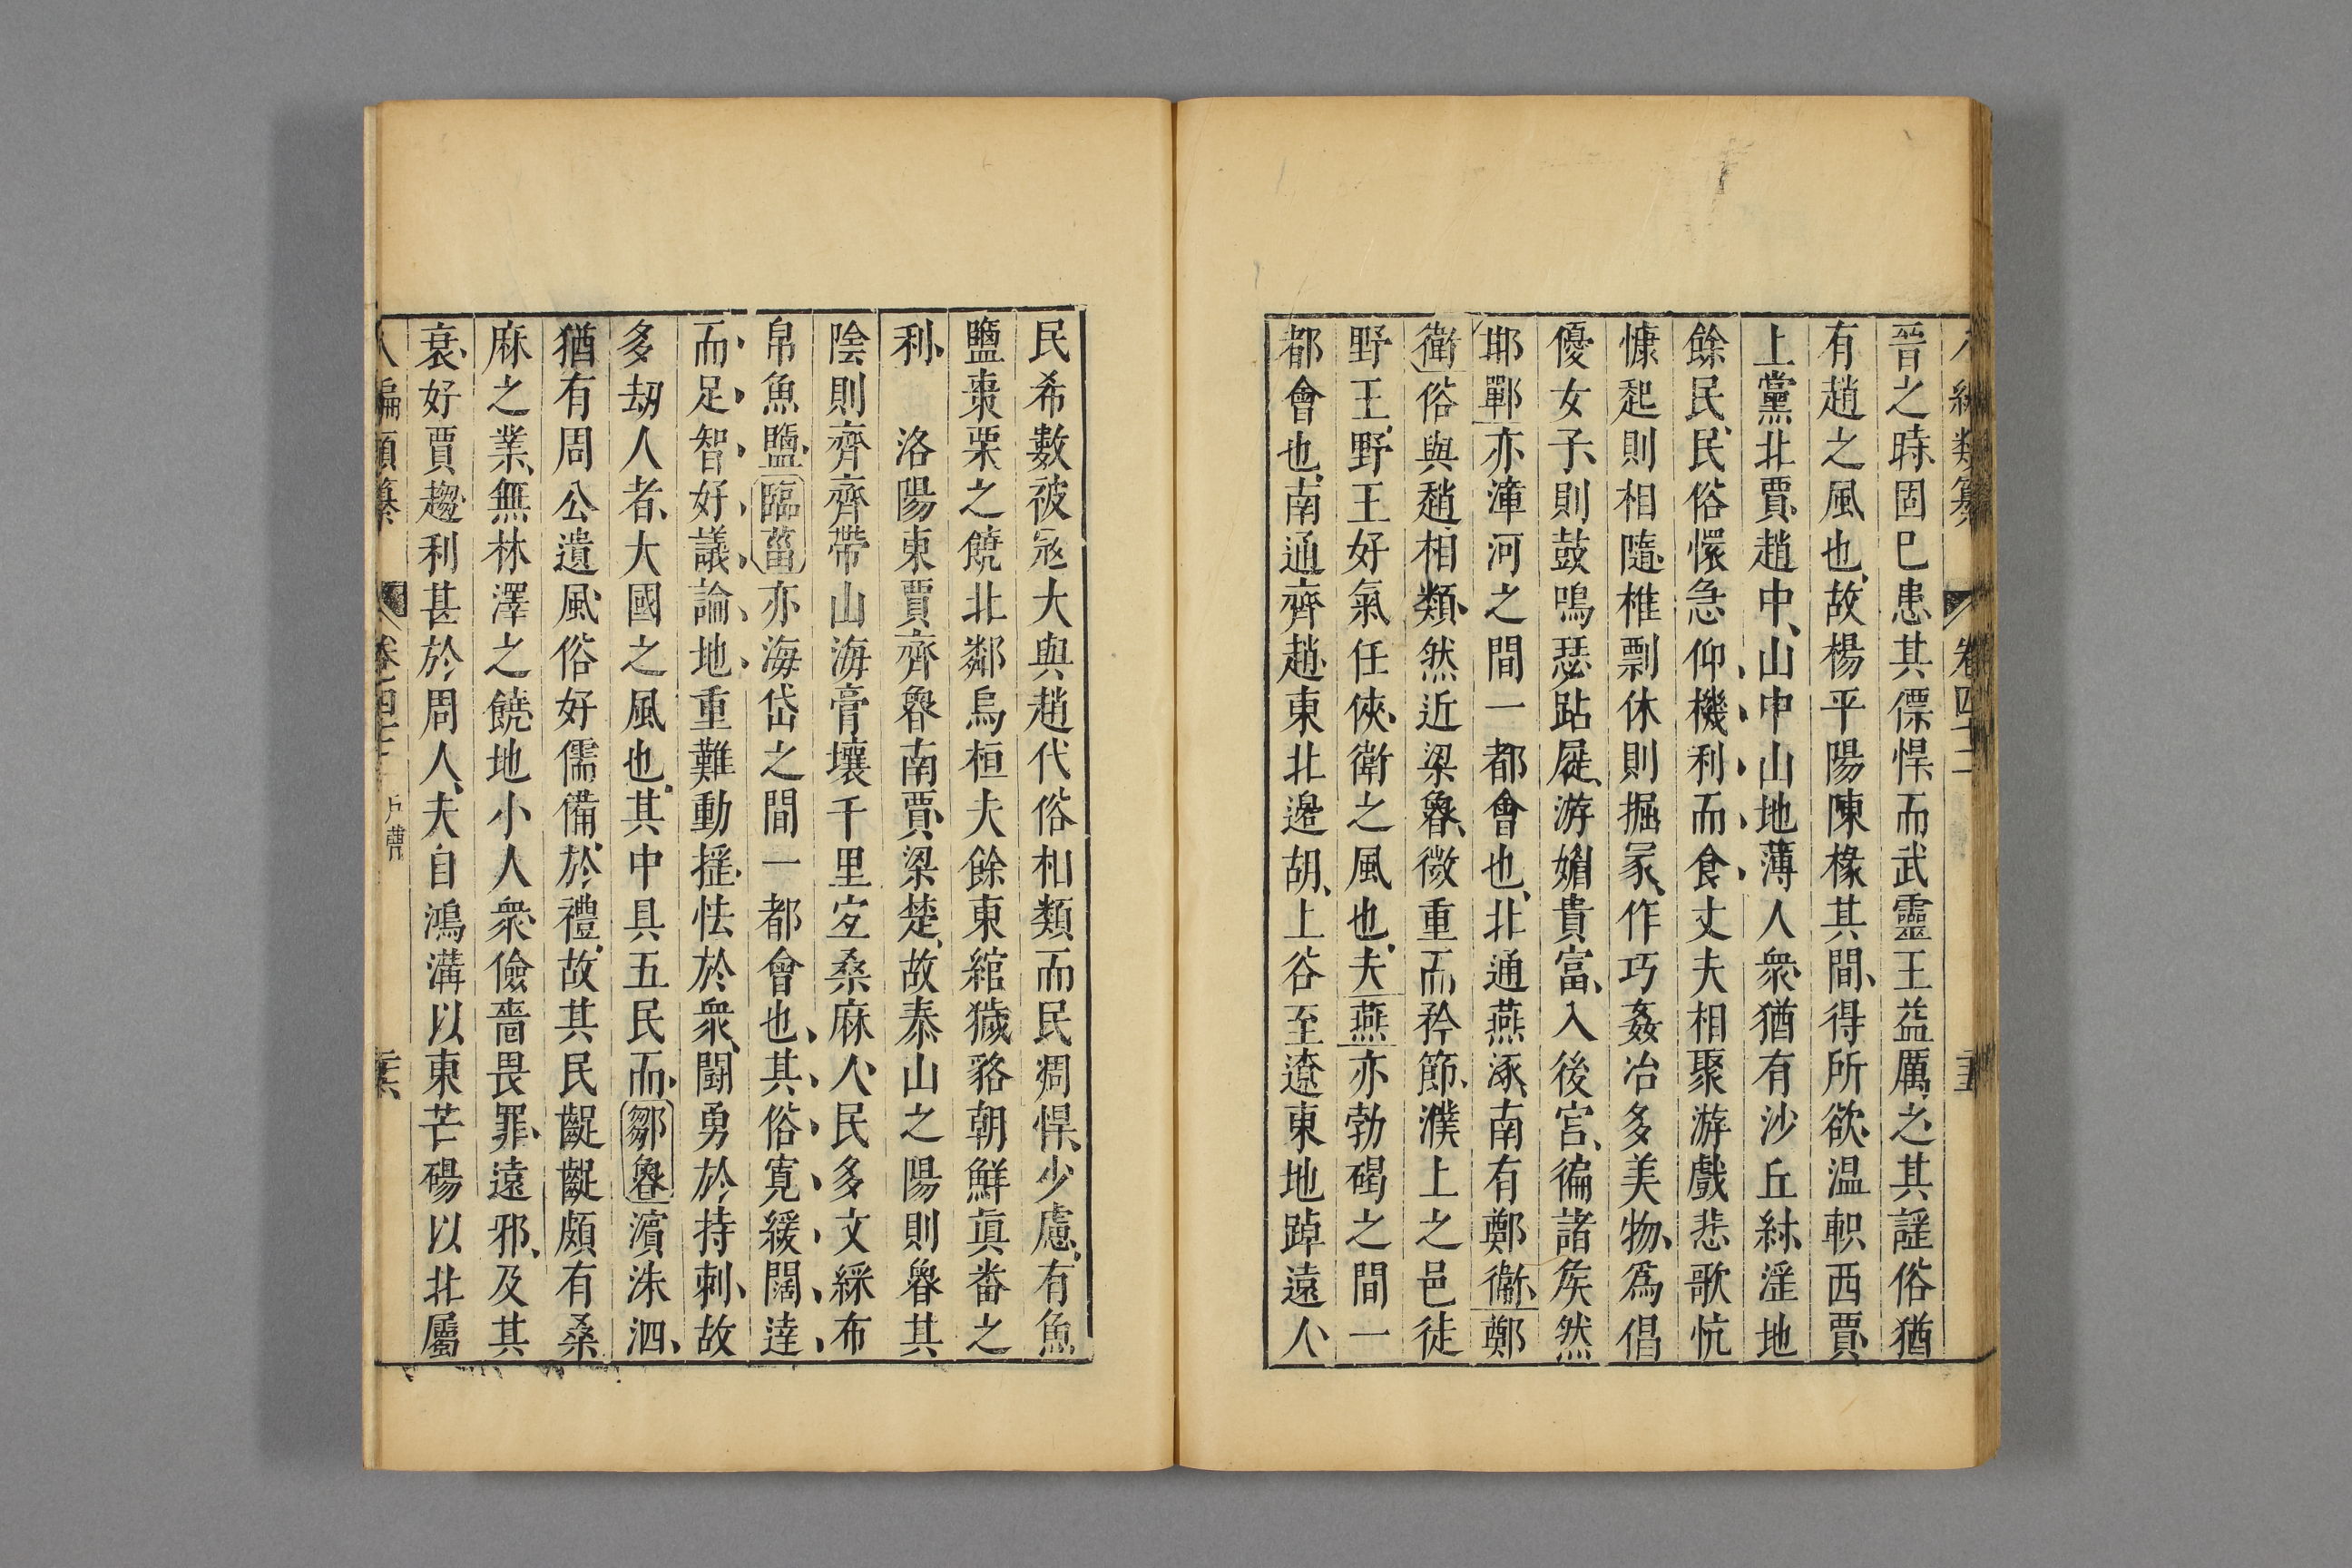 晉之時固已患其僄悍而武靈王益厲之其謡俗猶
有趙之風也故楊平陽陳椽其間得所欲温軹西賈
上黨北賈趙中山中山地薄人衆猶有沙丘紂淫地
餘民民俗懁急仰機利而食丈夫相聚游戲悲歌忼
慷起則相隨椎剽休則掘冡作巧姦冶多美物爲倡
優女子則鼓鳴瑟跕屣游媚貴富入後宫徧諸矦然
邯鄲亦漳河之間一都會也北通燕涿南有鄭衞鄭
衛俗與趙相類然近梁魯微重而矜節濮上之邑徒
野王野王好氣任俠衛之風也夫燕亦勃碣之間一
都會也南通齊趙東北邉胡上谷至遼東地踔遠人
民希數被冦大與趙代俗相類而民雕悍少慮有魚
鹽棗栗之饒北鄰烏桓夫餘東綰穢貉朝鮮眞番之
利　洛陽東賈齊魯南賈梁楚故泰山之陽則魯其
陰則齊齊帶山海膏壤千里宜桑麻人民多文綵布
帛魚鹽臨菑亦海岱之間一都會也其俗寛緩闊達
而足智好議論地重難動摇怯於衆鬪勇於持刺故
多刼人者大國之風也其中具五民而鄒魯濵洙泗
猶有周公遺風俗好儒備於禮故其民齪齪頗有桑
麻之業無林澤之饒地小人衆儉嗇畏罪遠邪及其
衰好賈趨利甚於周人夫自鴻溝以東芒碭以北屬